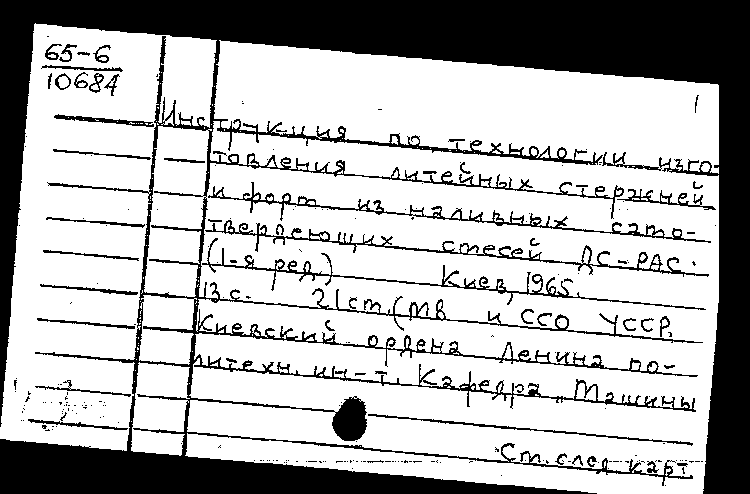 65-6
10684
1
Инструкция по технологии изго-
товления литейных стержней
и форм из наливных само-
твердеющих смесей ДС-РАС.
(1-я ред.) Киев, 1965.
13 с. 21 см. (МВ и ССО УССР.
Киевский ордена Ленина по-
литехн. ин-т. Кафедра „Машины
См. след карт.